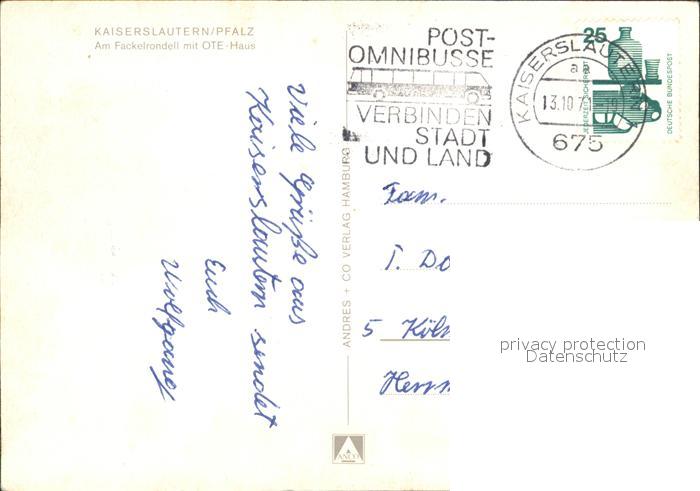 KAISERSLAUTERN/PFALZ
Am Fackelrondell mit OTE-Haus
POST-
OMNIBUSSE
VERBINDEN
STADT
UND LAND
KAISERSLAUTERN
aa
13.10.71-19
675
25
JEDERZEIT SICHERHEIT
DEUTSCHE BUNDESPOST
Viele Grüße aus
Kaiserslautern sendet
Euch
Wolfgang
ANDRES + CO VERLAG HAMBURG
Fam.
T. Do
5 Köln
Herrn
ANCO
privacy protection
Datenschutz